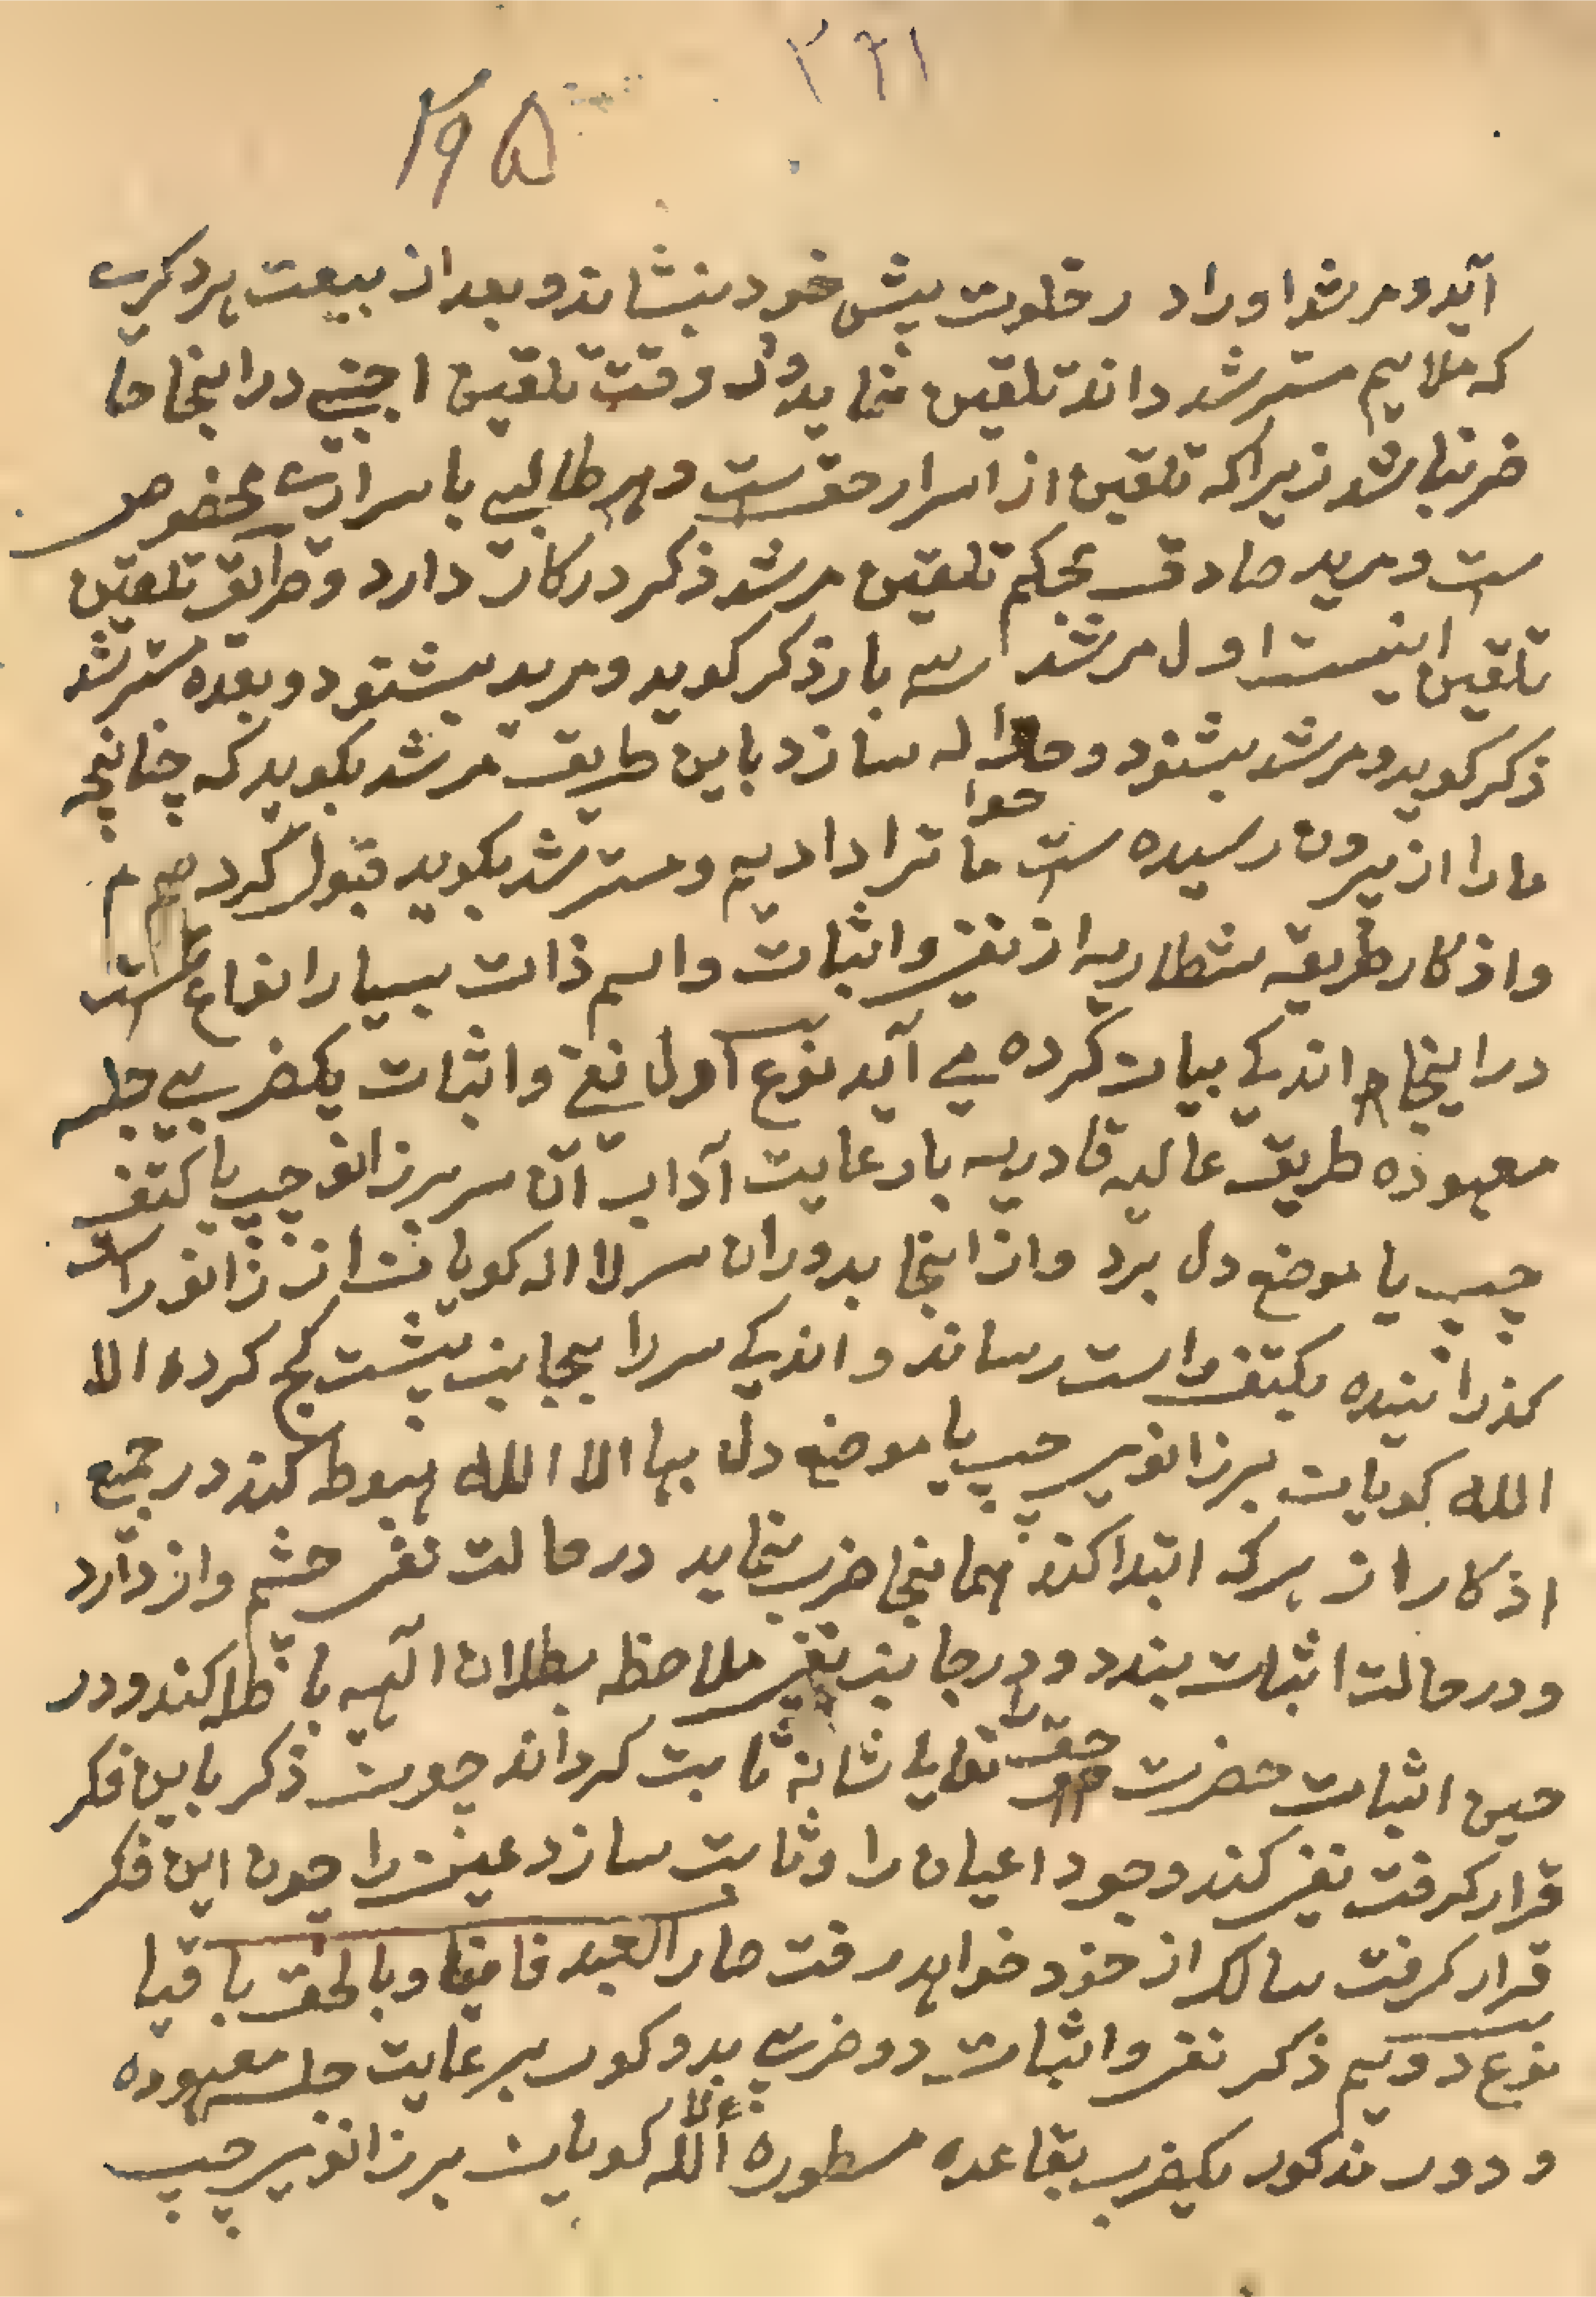 ۳۶۱
۲۹۵
آید و مرشد او را در خلوت پیش خود بنشاند و بعد از بیعت هر ذکرے
که ملایم مسترشد داند تلقین نماید و در وقت تلقین اجنبے در اینجا حا
ضر نباشد زیرا که تلقین از اسرار حق ست و هر طالبے باسرارے مخصوص
ست و مرید صادق بحکم تلقین مرشد ذکر در کار دارد و طریق تلقین
تلقین اینست اول مرشد سه بار ذکر کوید و مرید بشنود و بعده مسترشد
ذکر کوید و مرشد بشنود و حواله سازد باین طریق مرشد بکوید که چنانچه
ما را از پیرون رسیده ست ما ترا دادیم و مسترشد بکوید قبول کردم
و اذکار طریقه شطاریه از نفی و اثبات و اسم ذات بسیار انواع ست
در اینجا اندکے بیان کرده مے آید نوع اول نفے و اثبات یکضربے جلسه
معهوده طریق عالیه قادریه با رعایت آداب آن سر بر زانو چپ یا کتف
چپ یا موضع دل برد و از اینجا بدوران سر لا اله کویان از زانو راست
کذرانیده بکتف راست رساند و اندکے سر را بجانب پشت کج کرده الا
الله کویان بر زانویے چپ یا موضع دل بها الا الله هبوط کند در جمیع
اذکار از هر که ابتدا کند همانجا ضرب نماید در حالت نفی چشم واز دارد
و در حالت اثبات بندد و در جانب نفی ملاحظه بطلان الهیه باطله کند و در
حین اثبات حضرت حق تعالی شانه ثابت کرداند چون ذکر باین فکر
قرار کرفت نفی کند وجود اعیان را و ثابت سازد عین را چون این فکر
قرار کرفت سالک از خود خواهد رفت صار العبد فانیا و بالحق باقیا
نوع دویم ذکر نفی و اثبات دو ضربے بدو کور برعایت جلسه معهوده
و دور مذکور یکضرب بقاعده مسطوره الا الله کویان بر زانویے چپ